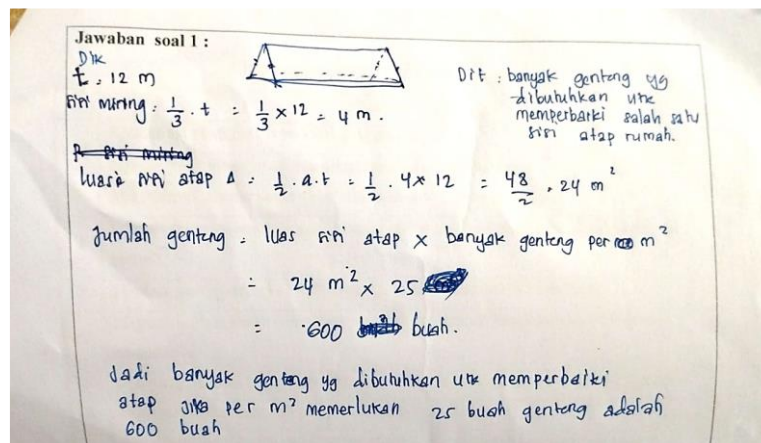 Jawaban soal 1 :
Dik
t = 12 m
sisi miring = 1/3 . t = 1/3 x 12 = 4 m.
Dit : banyak genteng yg
dibutuhkan utk
memperbaiki salah satu
sisi atap rumah.
luas sisi atap Δ = 1/2 . a.t = 1/2 . 4 x 12 = 48/2 = 24 m²
Jumlah genteng = luas sisi atap x banyak genteng per m²
= 24 m² x 25
= 600 buah.
Jadi banyak genteng yg dibutuhkan utk memperbaiki
atap jika per m² memerlukan 25 buah genteng adalah
600 buah